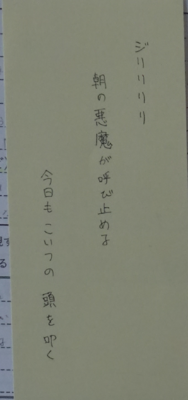 ジリリリリ
朝の悪魔が呼び止める
今日もこいつの 頭を叩く